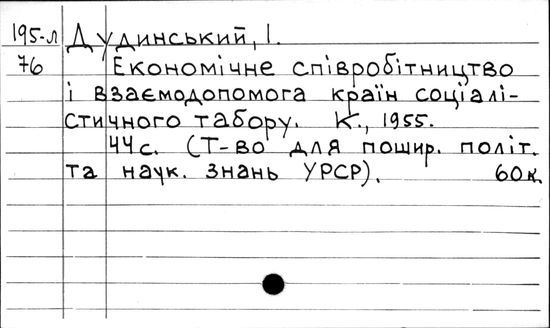 195-л Дудинський, І.
76 Економічне співробітництво
і взаємодопомога країн соціалі-
стичного табору. К., 1955.
44 с. (Т-во для пошир. політ.
та наук. знань УРСР). 60 к.